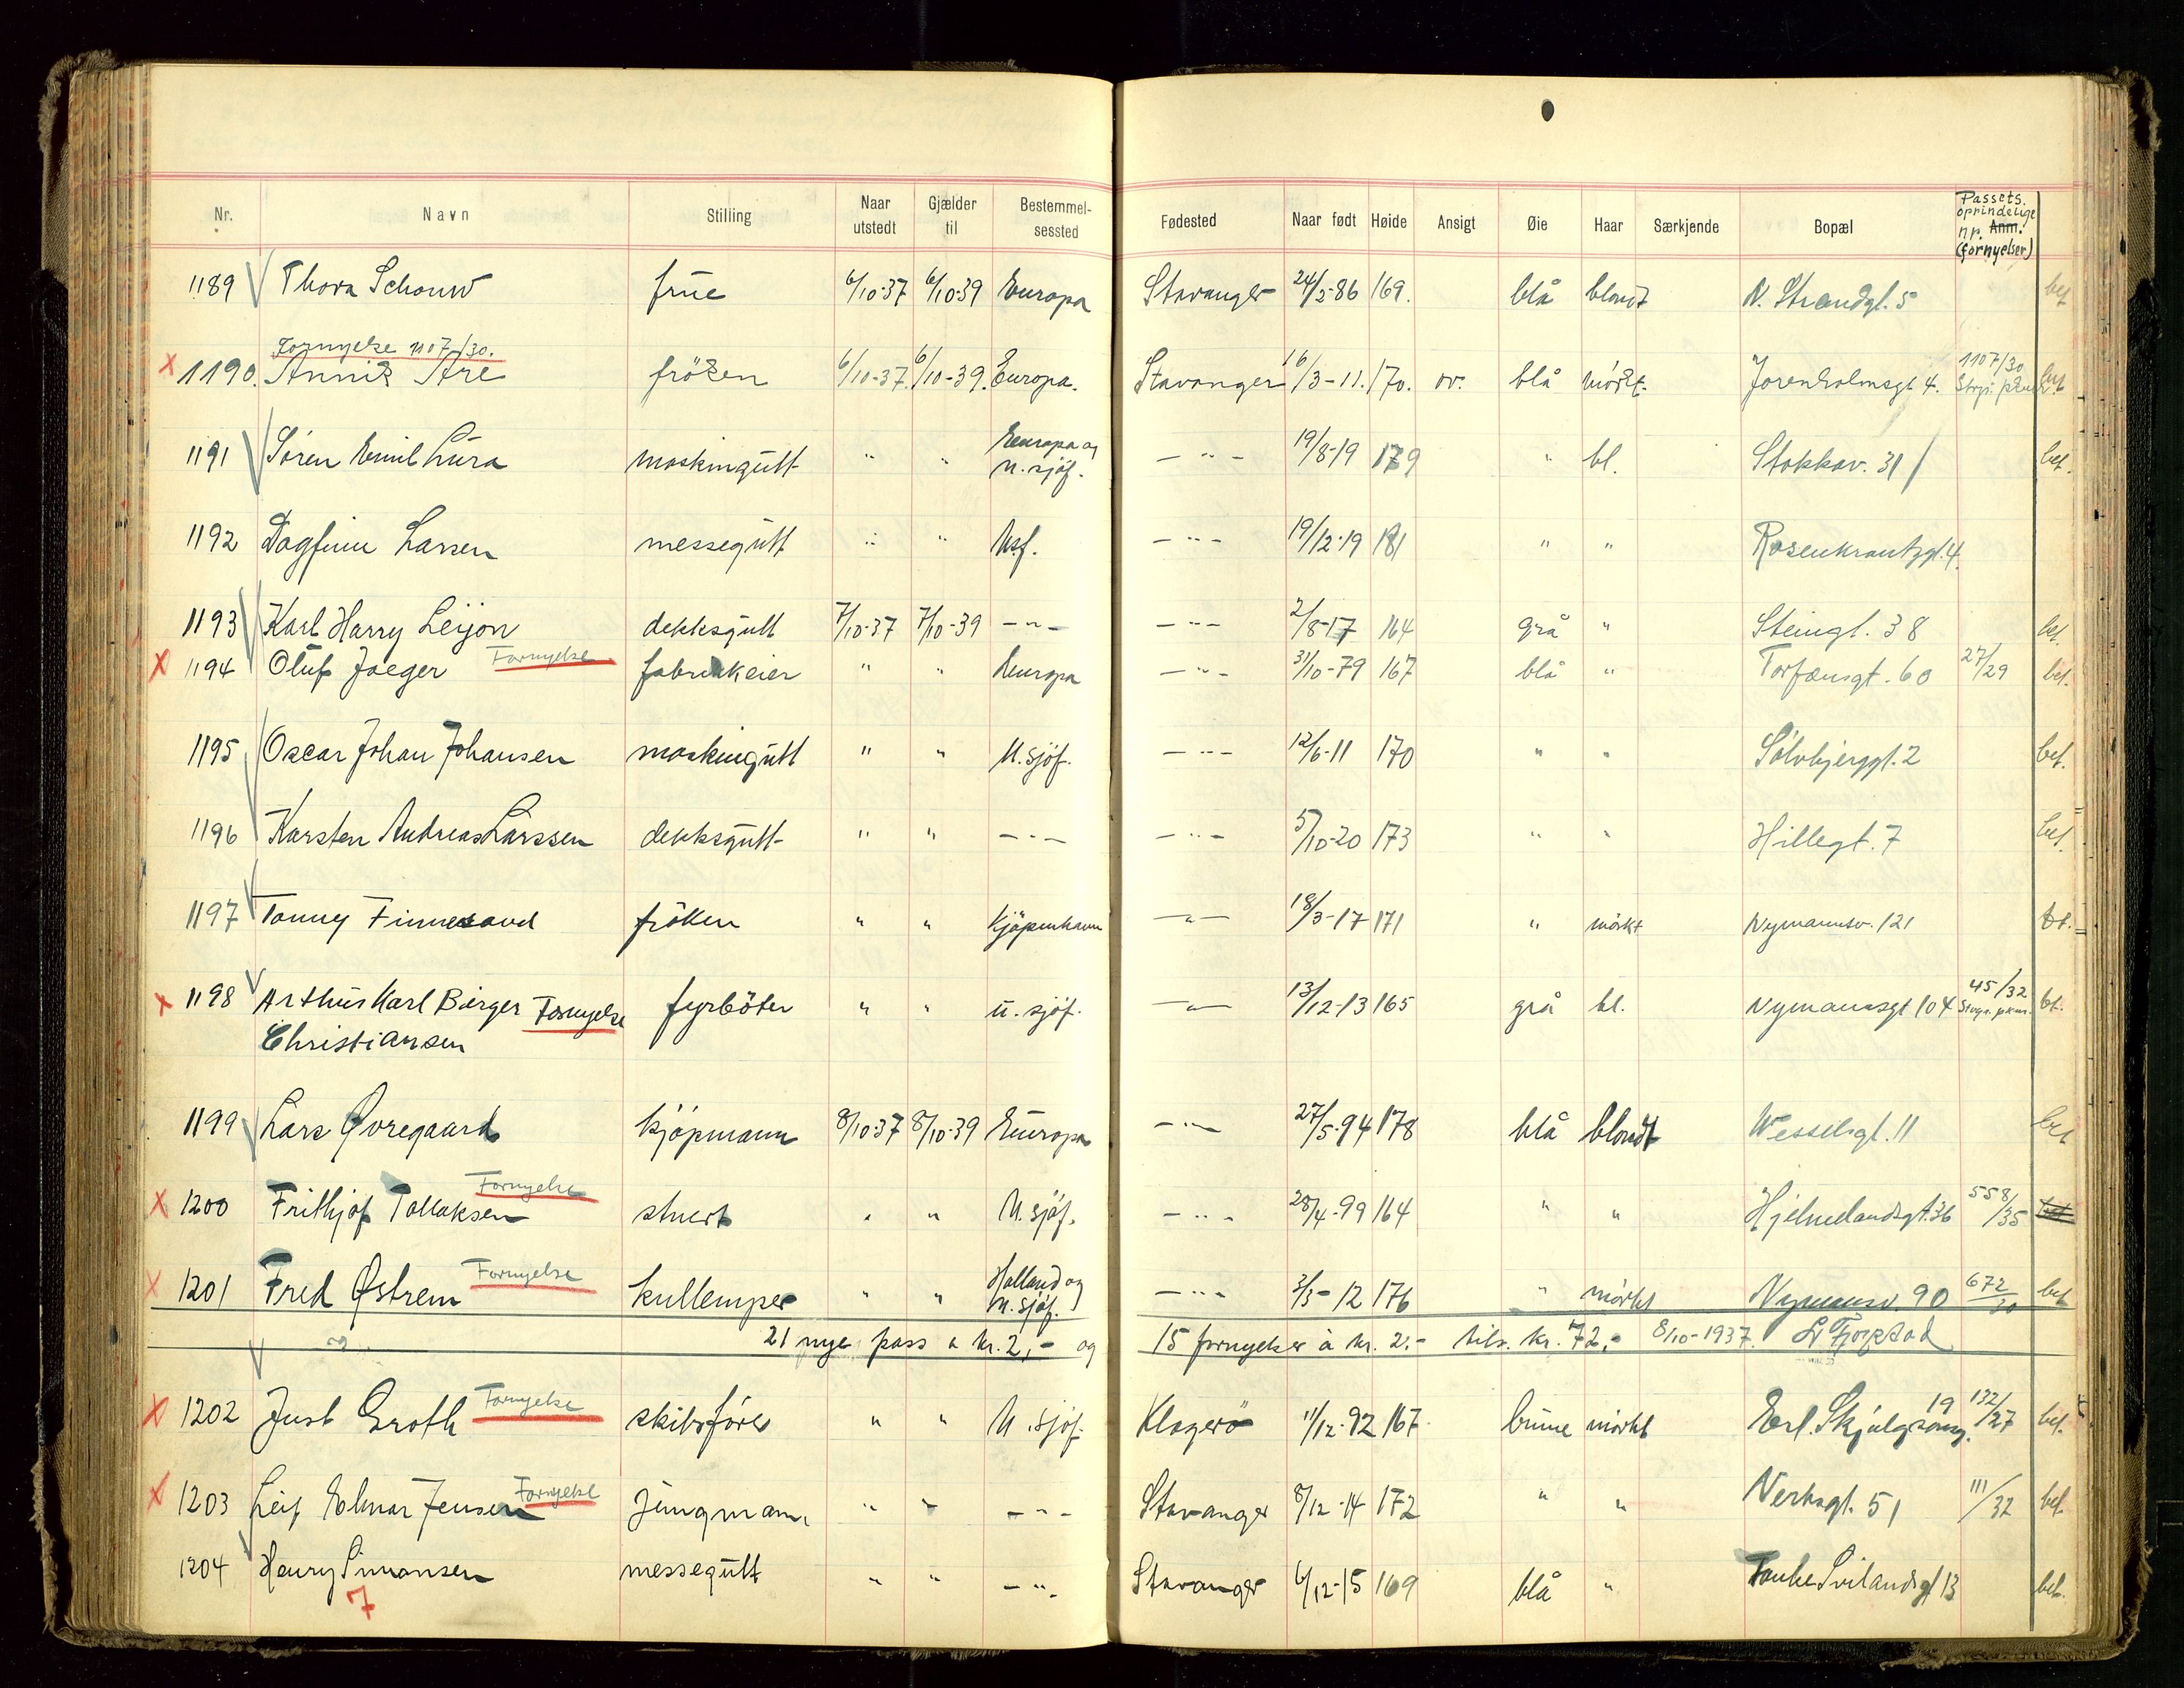 Nr. Navn Stilling Naar utstedt Gjælder til Bestemmel-sessted Fødested Naar født Høide Ansigt Øie Haar Særkjende Bopæl Passets oprindelige nr. Anm. (fornyelser)
1189 Thora Schouw frue 6/10-37 6/10-39 Europa Stavanger 24/5-86 169. blå blondt N. Strandgt. 5 bet
Fornyelse 1107/30.
1190. Are fröken 6/10-37. 6/10-39. Europa. Stavanger 16/3-11. 170. ov. blå mörkt. Jorenholmsgt 4. 1107/30 bet
1191 Sören Emil Lura maskingutt " " Europa og u. sjöf. — " — 19/8-19 179 " bl. Stokkav. 31 bet.
1192 Dagfinn Larsen messegutt " " Usf. — " — 19/12-19 181 " " Rosenkrantzgt. 4.
1193 Karl Harry Leijon dekksgutt 7/10-37 7/10-39 — " — — " — 2/8-17 164 grå " Steingt. 38 bet.
1194 Oluf Jaeger Fornyelse fabrikkeier " " Europa — " — 31/10-79 167 blå " Torfæusgt. 60 27/29 bet.
1195 Oscar Johan Johansen maskingutt " " U. sjöf. — " — 12/6-11 170 " " Sölvbjerggt. 2 bet.
1196 Karsten Andreas Larssen dekksgutt " " — " — — " — 5/10-20 173 " " Hillegt. 7 bet.
1197 Tonny Finnesand fröken " " Kjöpenhavn — " — 18/3-17 171 " mörkt Nymannsv. 121 bet.
1198 Arthur Karl Birger Fornyelse fyrböter " " u. sjöf. — " — 13/12-13 165 grå bl. Nymannsgt 104 45/32 Stvgr. pkm. bet.
Christiansen
1199 Lars Øvregaard kjöpmann 8/10-37 8/10-39 Europa — " — 27/5-94 178 blå blondt Wesselsgt. 11 bet
1200 Frithjof Tollaksen Fornyelse stuert " " U. sjöf. — " — 28/4-99 164 " " Hjelmelandsgt. 36 558/35 bet.
1201 Fred Østrem Fornyelse kullemper " " Holland og u. sjöf. — " — 3/5-12 176 " mörkt Nymansv. 90 672/30 bet
og 21 nye pass a kr. 2,- og 15 fornyelser à kr. 2.- tils. kr. 72.- 8/10-1937.
1202 Just Groth Fornyelse skibsförer " " U. sjöf. Kragerö 11/12-92 167 brune mörkt Erl. Skjalgsonsg. 19 132/27 bet.
1203 Leif Elmar Jensen Fornyelse jungmann " " — " — Stavanger 8/12-14 172 " " Verksgt. 51 111/32 bet.
1204 Henry Simonsen messegutt " " — " — Stavanger 6/12-15 169 blå " Tanke Svilandsgt 13 bet.
7